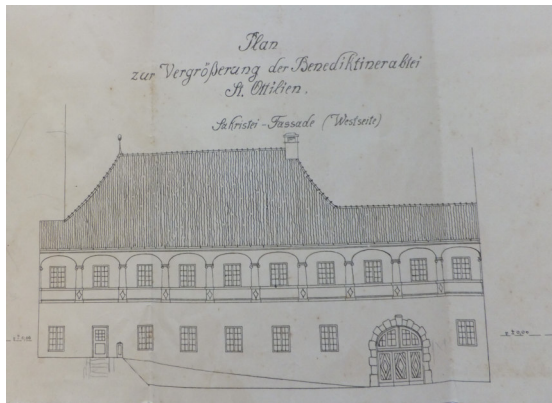 Plan
zur Vergrößerung der Benediktinerabtei
St. Ottilien.
Sakristei-Fassade (Westseite)